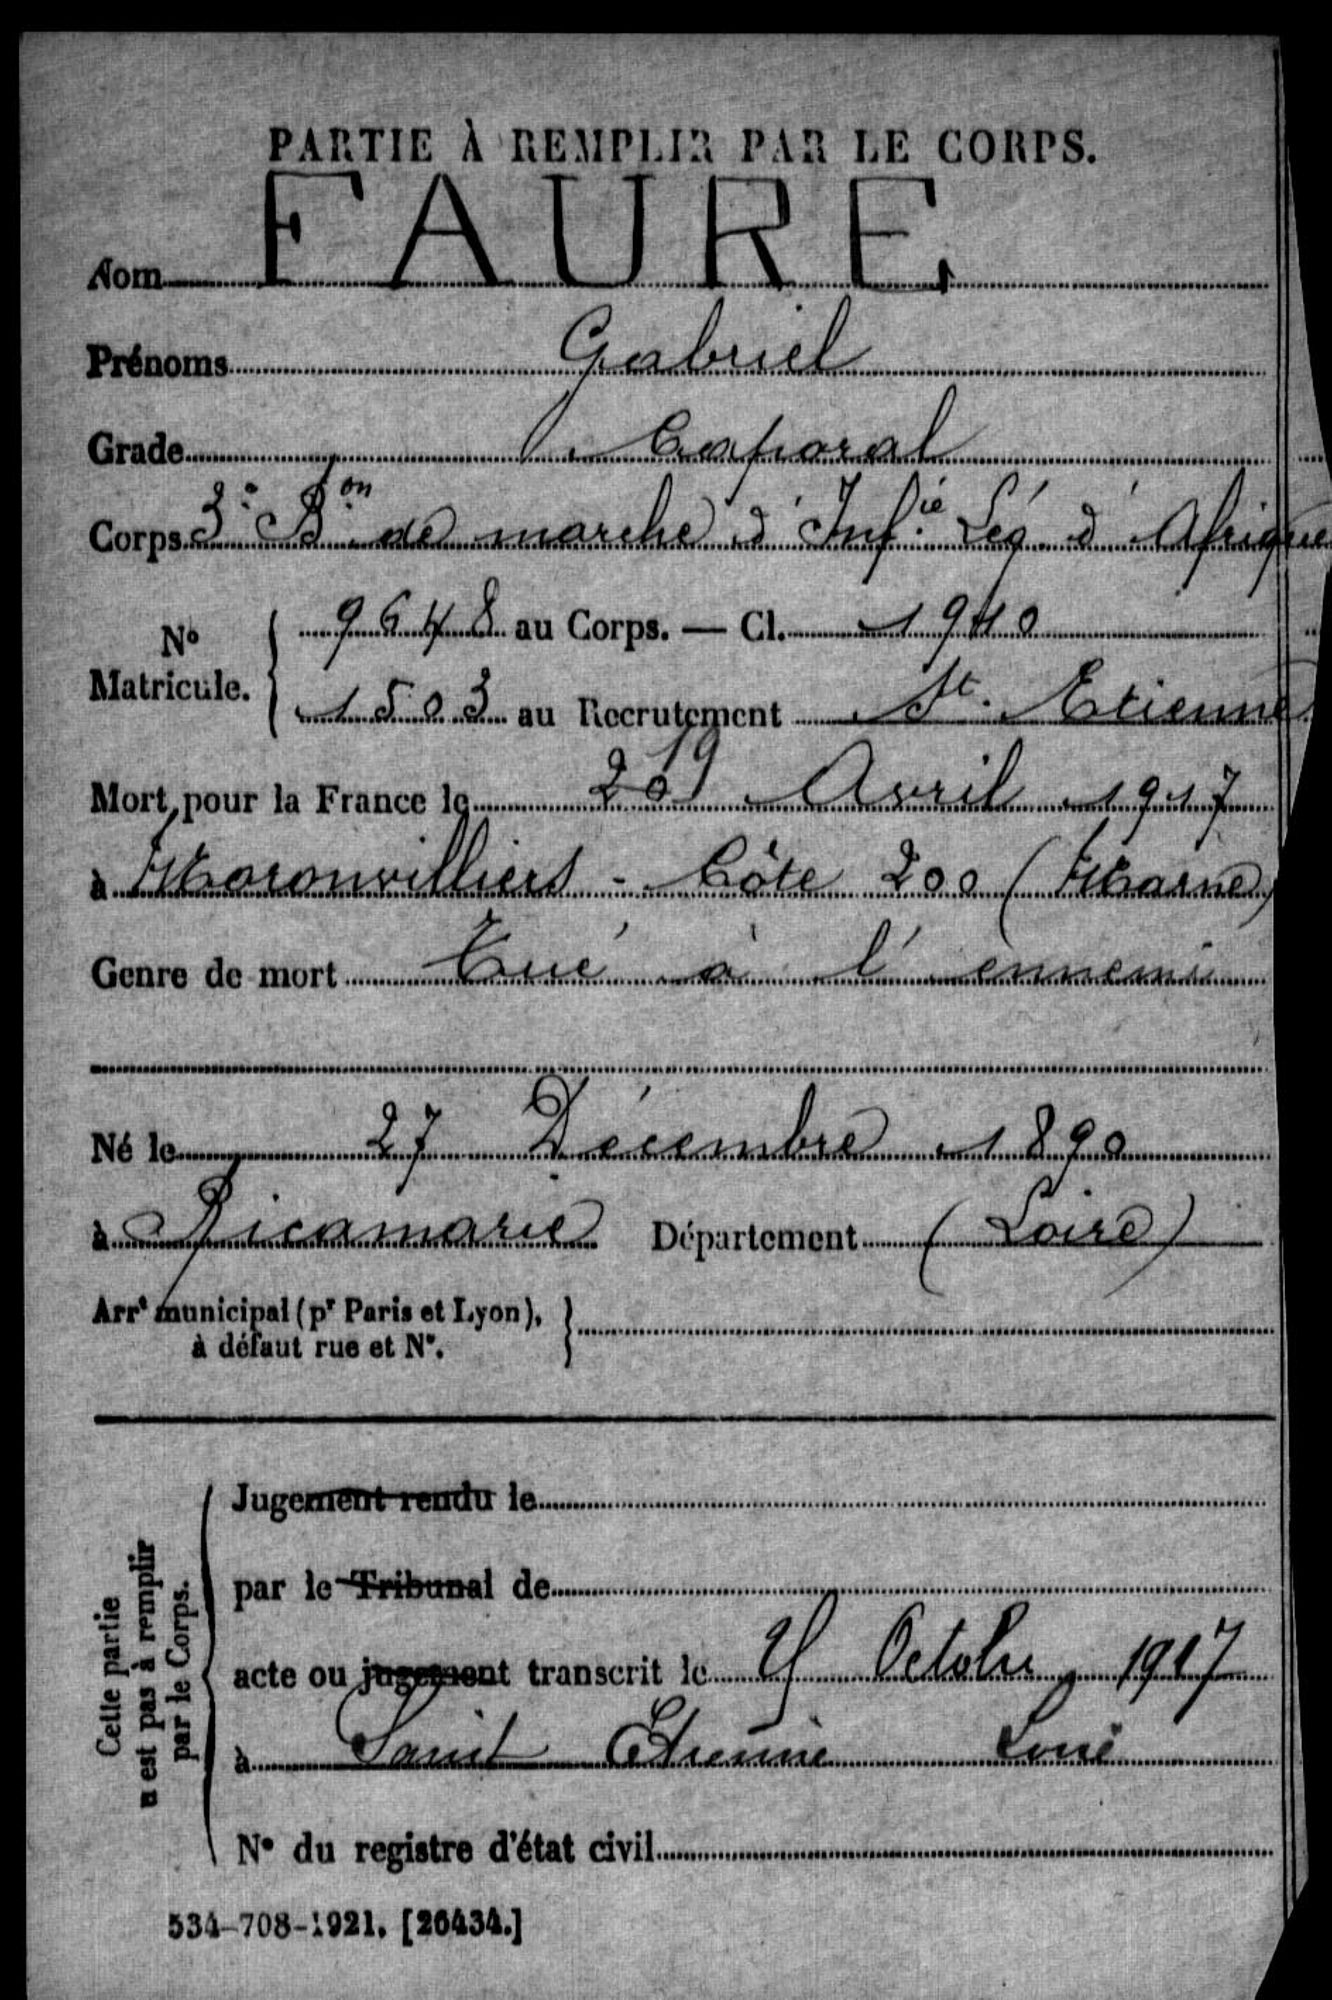 PARTIE À REMPLIR PAR LE CORPS.
Nom FAURE
Prénoms Gabriel
Grade Caporal
Corps 3e Bon de marche d'Infie Lég. d'Afrique
No Matricule. { 9648 au Corps. — Cl. 1910
1503 au Recrutement St. Etienne
Mort pour la France le 19 Avril 1917
à Moronvilliers - Côte 200 (Marne)
Genre de mort Tué à l'ennemi
Né le 27 Décembre 1890
à Ricamarie Département (Loire)
Arrt municipal (pr Paris et Lyon),
à défaut rue et No.
Cette partie
n'est pas à remplir
par le Corps.
Jugement rendu le
par le Tribunal de
acte ou jugement transcrit le Octobre 1917
à Saint Etienne Loire
No du registre d'état civil
534-708-1921. [26434.]